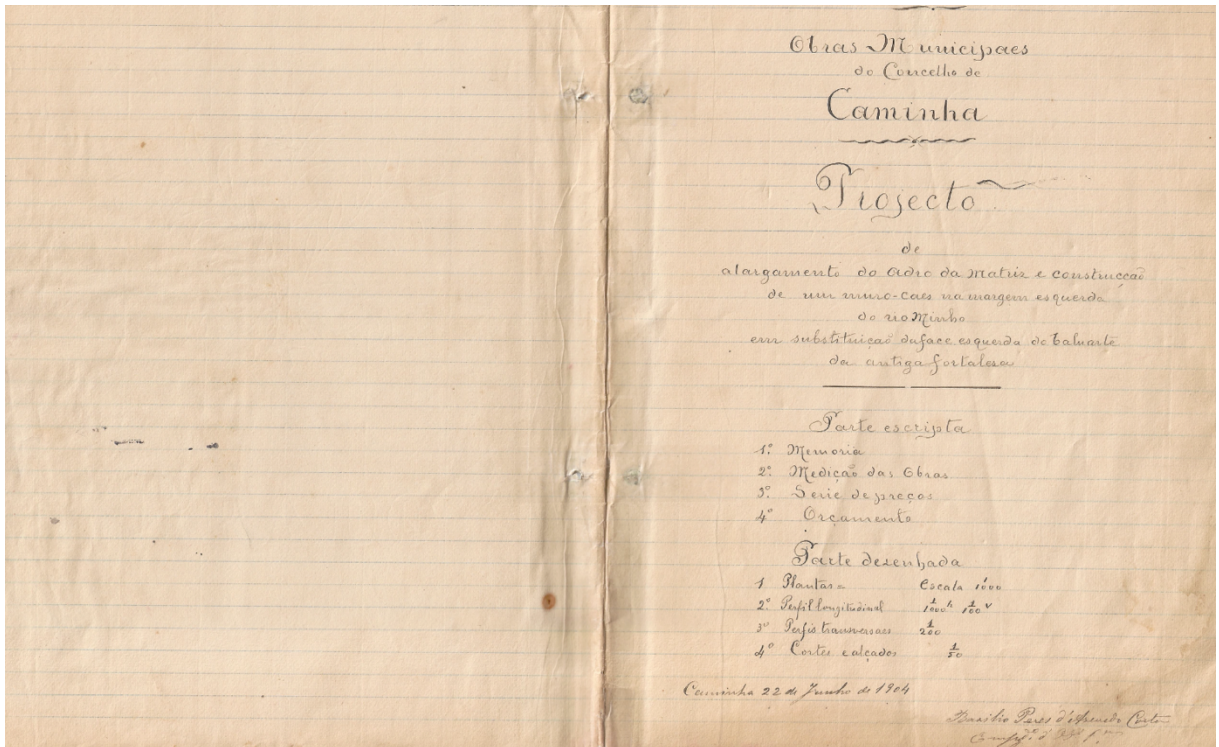 Obras Municipaes
do Concelho de
Caminha
Projecto
de
alargamento do adro da Matriz e construcção
de um muro-caes na margem esquerda
do rio Minho
em substituição da face esquerda do baluarte
da antiga fortalesa
Parte escripta
1º Memoria
2º Medição das Obras
3º Serie de preços
4º Orçamento
Parte desenhada
1 Plantas = Escala 1/1000
2º Perfil longitudinal 1/1000 h 1/100 v
3º Perfis transversaes 1/200
4º Cortes e alçados 1/50
Caminha 22 de Junho de 1904
Basilio Peres d'Azevedo